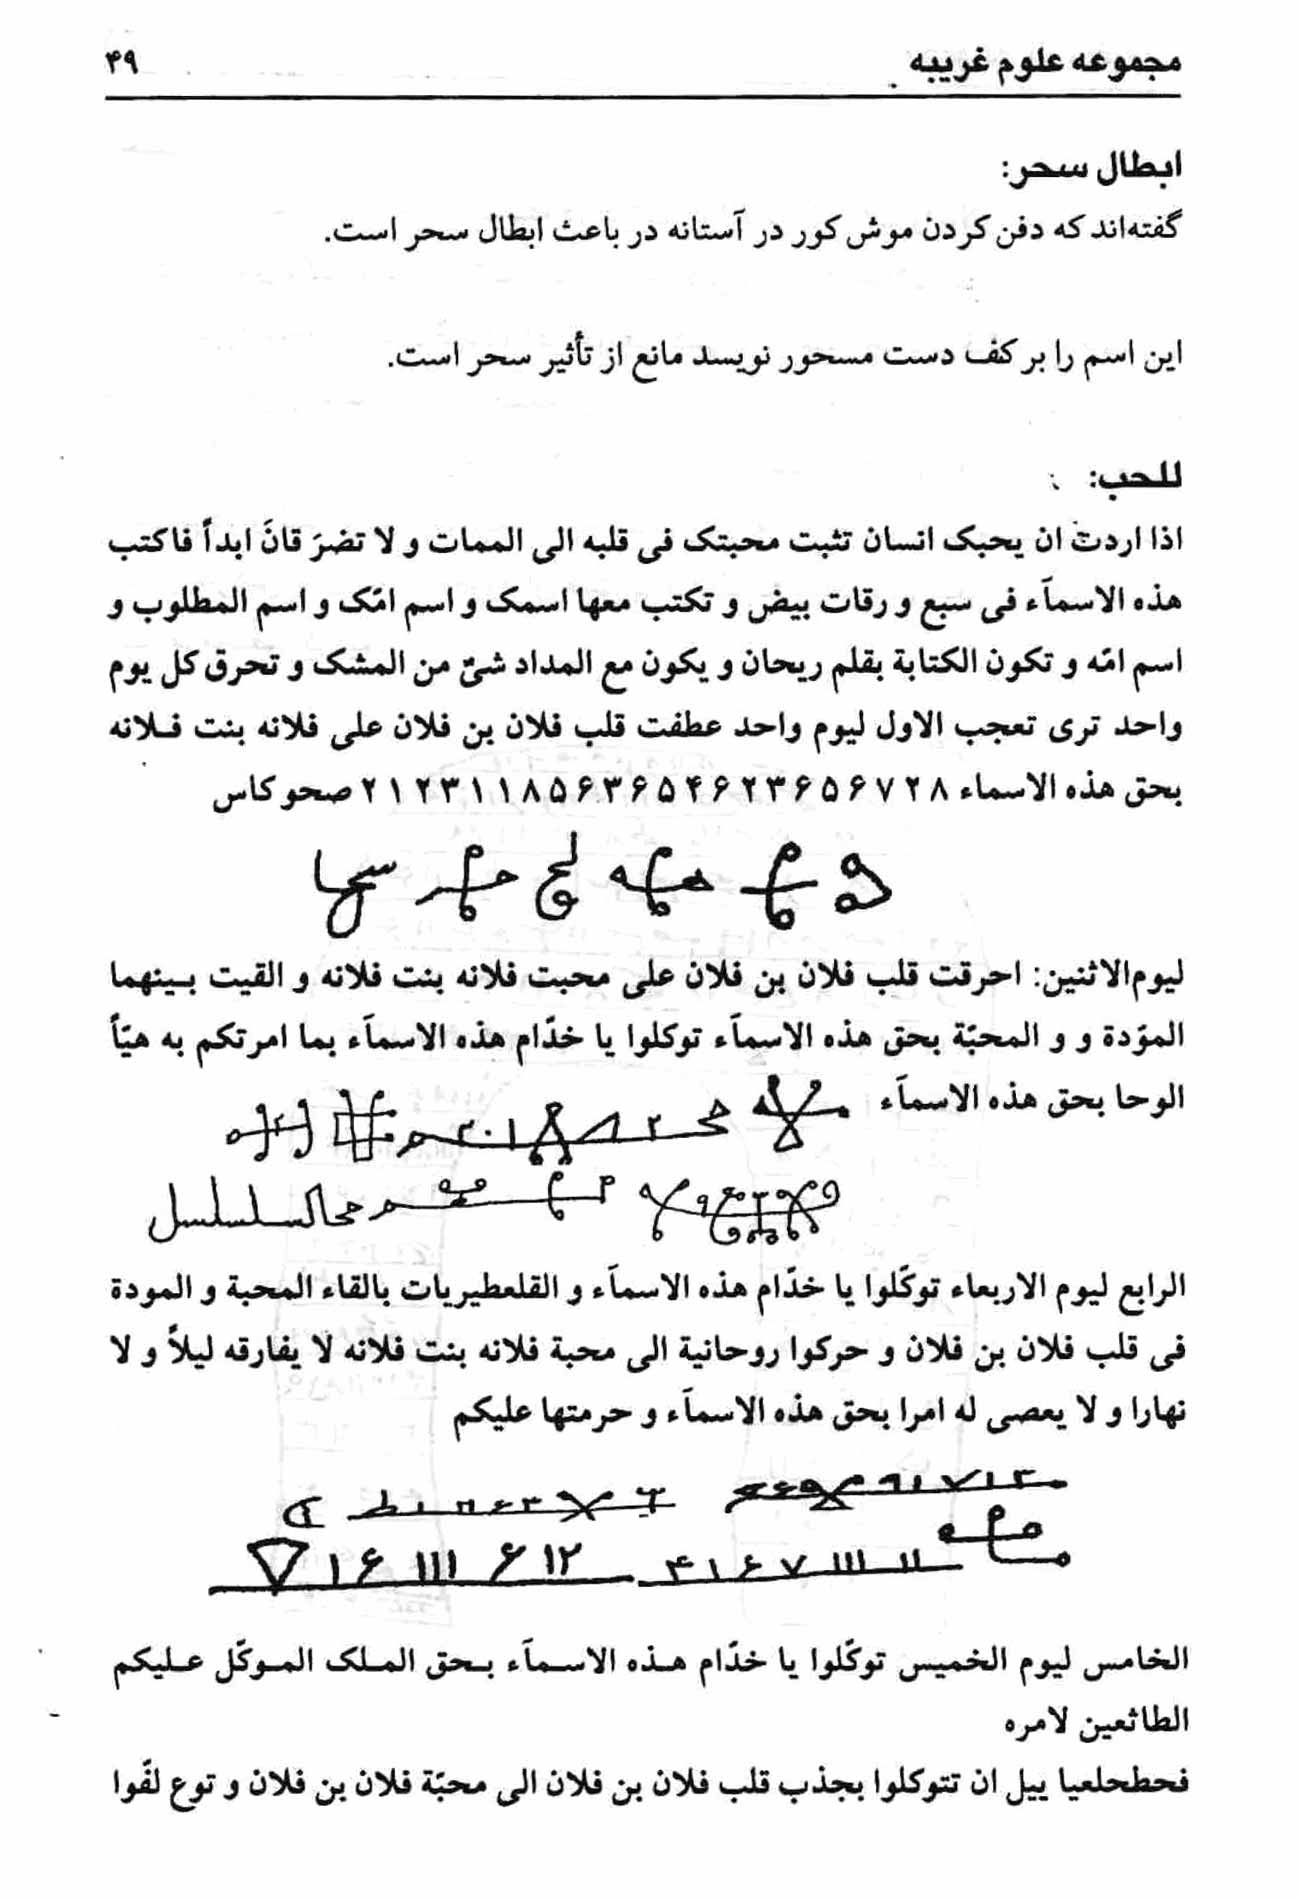 مجموعه علوم غریبه
۴۹
ابطال سحر:
گفته‌اند که دفن کردن موش کور در آستانه در باعث ابطال سحر است.
این اسم را بر کف دست مسحور نویسد مانع از تأثیر سحر است.
للحب:
اذا اردت ان یحبک انسان تثبت محبتک فی قلبه الی الممات و لا تضرَ قانَ ابداً فاکتب
هذه الاسمآء فی سبع و رقات بیض و تکتب معها اسمک و اسم امّک و اسم المطلوب و
اسم امّه و تکون الکتابة بقلم ریحان و یکون مع المداد شیٌ من المشک و تحرق کل یوم
واحد تری تعجب الاول لیوم واحد عطفت قلب فلان بن فلان علی فلانه بنت فـلانه
بحق هذه الاسماء ۸ ۲ ۷ ۶ ۵ ۶ ۳ ۲ ۶ ۴ ۵ ۶ ۳ ۶ ۵ ۸ ۱ ۱ ۳ ۲ ۱ ۲ صحو کاس
لیوم‌الاثنین: احرقت قلب فلان بن فلان علی محبت فلانه بنت فلانه و القیت بـینهما
الموّدة و و المحبّة بحق هذه الاسمآء توکلوا یا خدّام هذه الاسمآء بما امرتکم به هیّاً
الوحا بحق هذه الاسمآء
الرابع لیوم الاربعاء توکّلوا یا خدّام هذه الاسمآء و القلعطیریات بالقاء المحبة و المودة
فی قلب فلان بن فلان و حرکوا روحانیة الی محبة فلانه بنت فلانه لا یفارقه لیلاً و لا
نهارا و لا یعصی له امرا بحق هذه الاسمآء و حرمتها علیکم
الخامس لیوم الخمیس توکّلوا یا خدّام هـذه الاسـمآء بـحق المـلک المـوکّل عـلیکم
الطائعین لامره
فحطحلعیا ییل ان تتوکلوا بجذب قلب فلان بن فلان الی محبّة فلان بن فلان و توع لفّوا